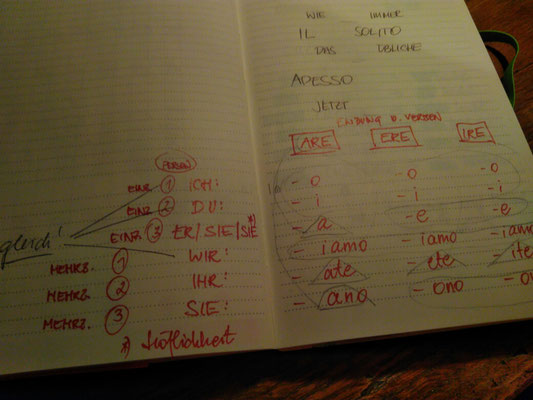 WIE IMMER
IL SOLITO
DAS ÜBLICHE
ADESSO
JETZT
ENDUNG V. VERBEN
ARE ERE IRE
PERSON
EINZ. 1 ICH: - o - o - o
EINZ. 2 DU: - i - i - i
gleich!
EINZ. 3 ER/SIE/SIE*) - a - e - e
MEHRZ. 1 WIR: - iamo - iamo - iamo
MEHRZ. 2 IHR: - ate - ete - ite
MEHRZ. 3 SIE: - ano - ono - o
*) Höflichkeit